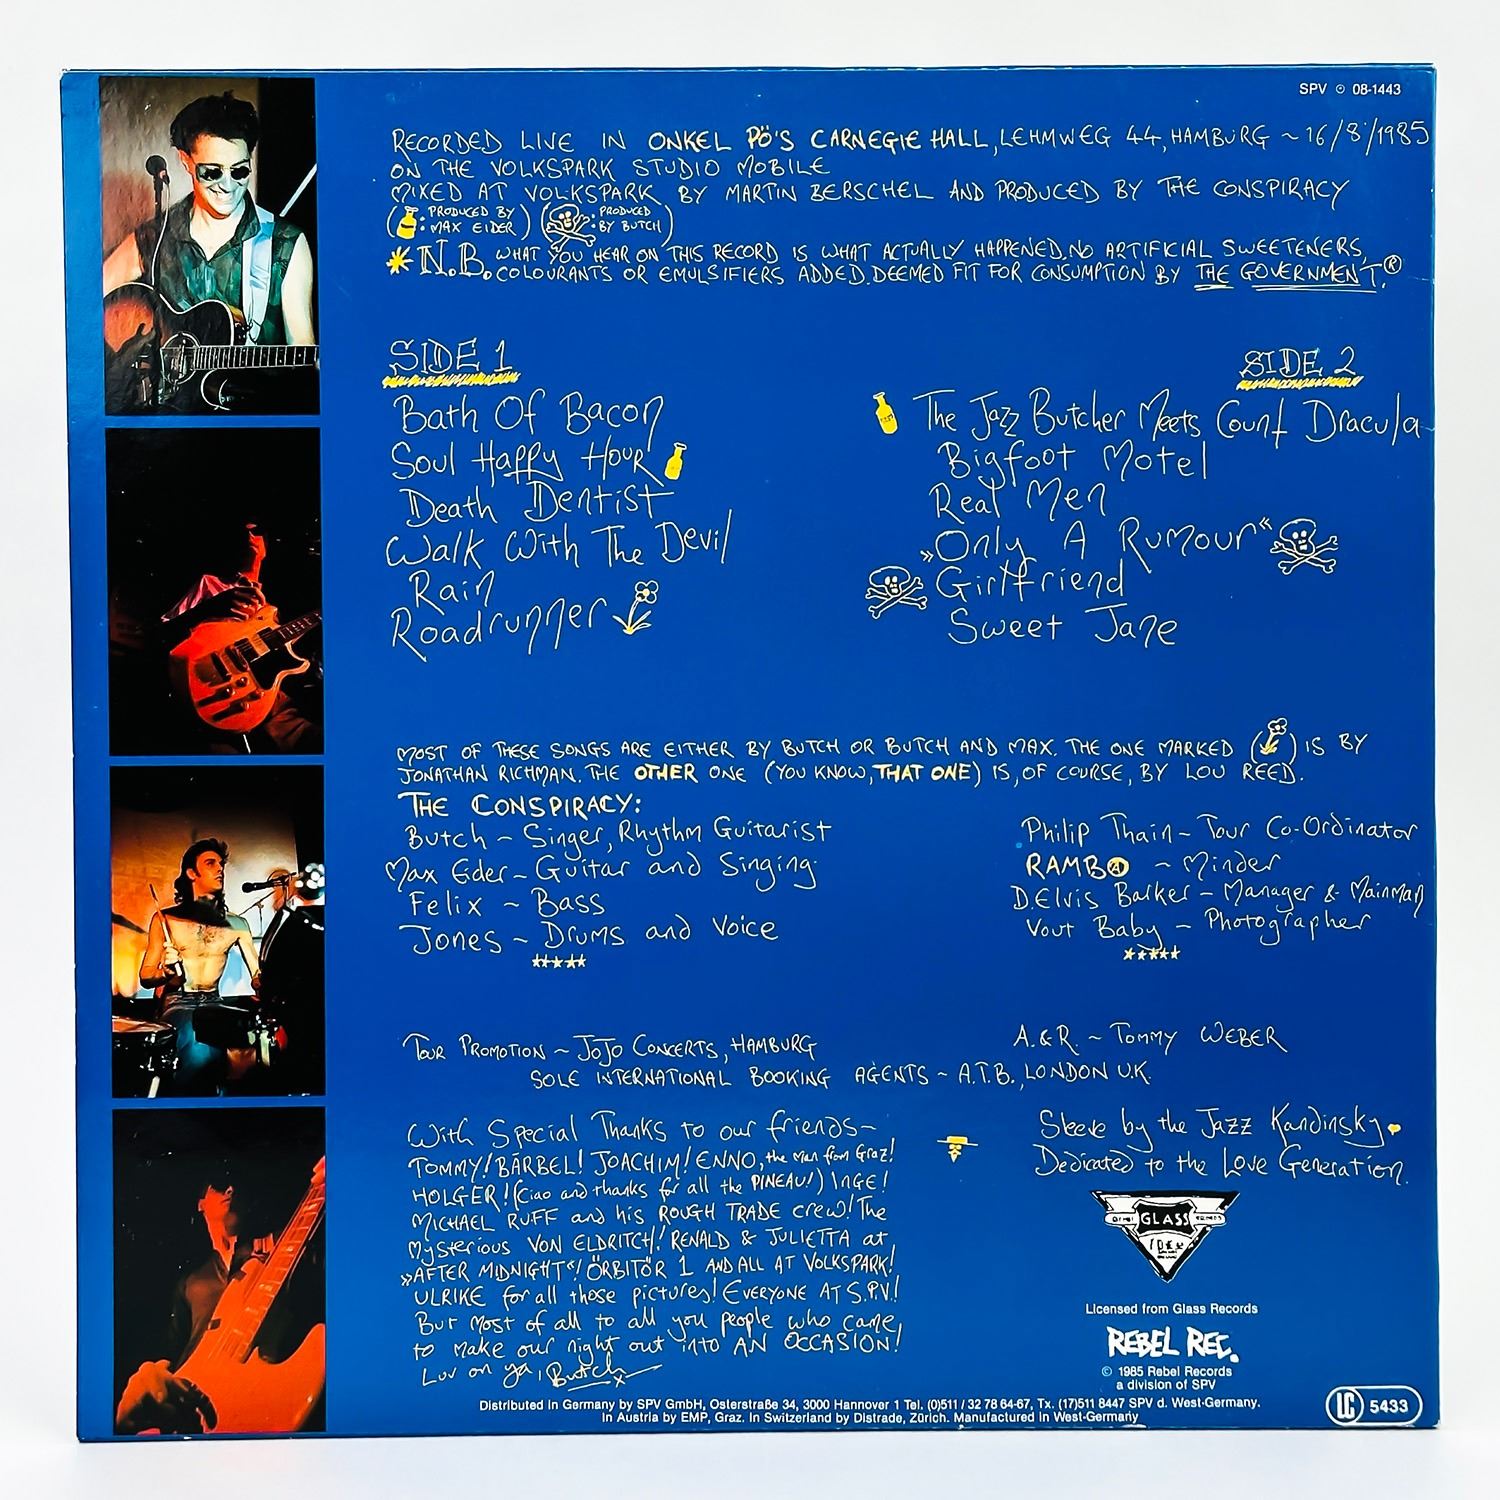 SPV ℗ 08-1443
RECORDED LIVE IN ONKEL PÖ'S CARNEGIE HALL, LEHMWEG 44, HAMBURG ~ 16/8/1985
ON THE VOLKSPARK STUDIO MOBILE
MIXED AT VOLKSPARK BY MARTIN BERSCHEL AND PRODUCED BY THE CONSPIRACY
( : PRODUCED BY MAX EIDER ) ( : PRODUCED BY BUTCH )
* N.B. WHAT YOU HEAR ON THIS RECORD IS WHAT ACTUALLY HAPPENED, NO ARTIFICIAL SWEETENERS,
COLOURANTS OR EMULSIFIERS ADDED. DEEMED FIT FOR CONSUMPTION BY THE GOVERNMENT.®
SIDE 1
Bath Of Bacon
Soul Happy Hour
Death Dentist
Walk With The Devil
Rain
Roadrunner
SIDE 2
The Jazz Butcher Meets Count Dracula
Bigfoot Motel
Real Men
»Only A Rumour«
Girlfriend
Sweet Jane
MOST OF THESE SONGS ARE EITHER BY BUTCH OR BUTCH AND MAX. THE ONE MARKED ( ) IS BY
JONATHAN RICHMAN. THE OTHER ONE (YOU KNOW, THAT ONE) IS, OF COURSE, BY LOU REED.
THE CONSPIRACY:
Butch ~ Singer, Rhythm Guitarist
Max Eider ~ Guitar and Singing
Felix ~ Bass
Jones ~ Drums and Voice
*****
Philip Thain ~ Tour Co-Ordinator
RAMBO ~ Minder
D. Elvis Barker ~ Manager & Mainman
Vout Baby ~ Photographer
*****
TOUR PROMOTION ~ JOJO CONCERTS, HAMBURG
A.&R. ~ TOMMY WEBER
SOLE INTERNATIONAL BOOKING AGENTS ~ A.T.B., LONDON U.K.
With Special Thanks to our friends ~
TOMMY! BÄRBEL! JOACHIM! ENNO, the Man from Graz!
HOLGER! (Ciao and thanks for all the PINEAU!) INGE!
MICHAEL RUFF and his ROUGH TRADE crew! The
Mysterious VON ELDRITCH! RENALD & JULIETTA at
»AFTER MIDNIGHT«! ÖRBITÖR 1 AND ALL AT VOLKSPARK!
ULRIKE for all those pictures! EVERYONE AT S.P.V.!
But most of all to all you people who came
to make our night out into AN OCCASION!
Luv on ya, Butch x
Sleeve by the Jazz Kandinsky
Dedicated to the Love Generation.
GLASS
Licensed from Glass Records
REBEL REC.
© 1985 Rebel Records
a division of SPV
Distributed in Germany by SPV GmbH, Osterstraße 34, 3000 Hannover 1 Tel. (0)511 / 32 78 64-67, Tx. (17)511 8447 SPV d. West-Germany.
in Austria by EMP, Graz. In Switzerland by Distrade, Zürich. Manufactured in West-Germany
LC 5433